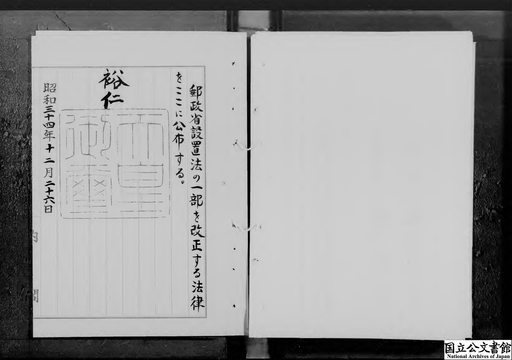 郵政省設置法の一部を改正する法律
をここに公布する。
裕仁
天皇
御璽
昭和三十四年十二月二十六日
内
国立公文書館
National Archives of Japan